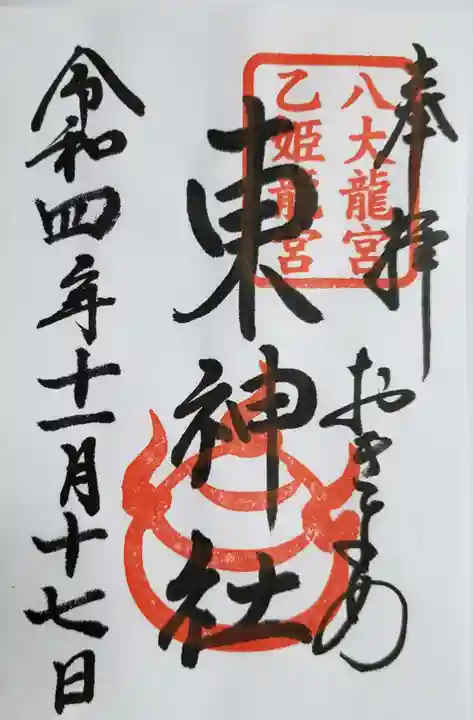 奉拝
八大龍宮
乙姫龍宮
おさとめの
東神社
令和四年十一月十七日